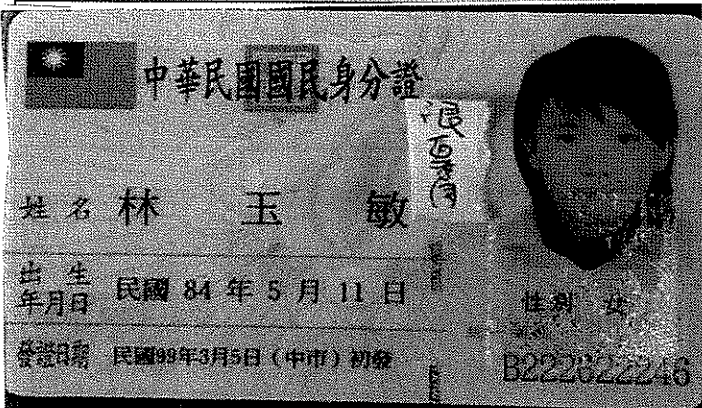 中華民國國民身分證
姓名 林玉敏
出生年月日 民國 84 年 5 月 11 日
性別 女
發證日期 民國93年3月5日（中市）初發
B222622246